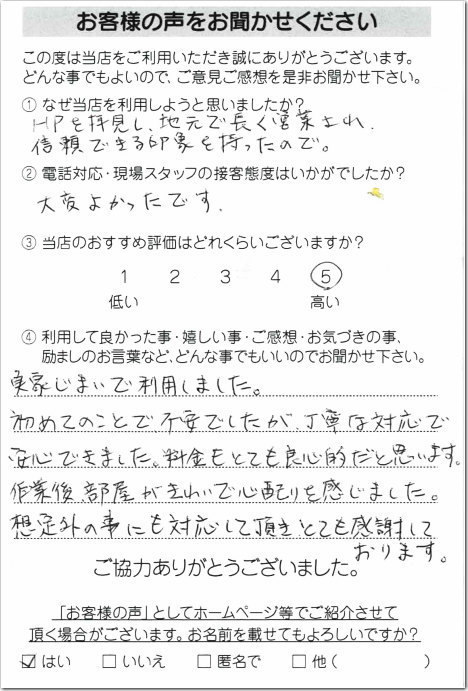 お客様の声をお聞かせください
この度は当店をご利用いただき誠にありがとうございます。
どんな事でもよいので、ご意見ご感想を是非お聞かせ下さい。
① なぜ当店を利用しようと思いましたか?
HPを拝見し、地元で長く営業され、
信頼できる印象を持ったので。
② 電話対応・現場スタッフの接客態度はいかがでしたか?
大変よかったです.
③ 当店のおすすめ評価はどれくらいございますか?
1 2 3 4 5
低い 高い
④ 利用して良かった事・嬉しい事・ご感想・お気づきの事、
励ましのお言葉など、どんな事でもいいのでお聞かせ下さい。
実家じまいで利用しました。
初めてのことで不安でしたが、丁寧な対応で
安心できました。料金もとても良心的だと思います。
作業後、部屋がきれいで心配りを感じました。
想定外の事にも対応して頂きとても感謝して
おります。
ご協力ありがとうございました。
「お客様の声」としてホームページ等でご紹介させて
頂く場合がございます。お名前を載せてもよろしいですか?
☑ はい □ いいえ □ 匿名で □ 他 ( )